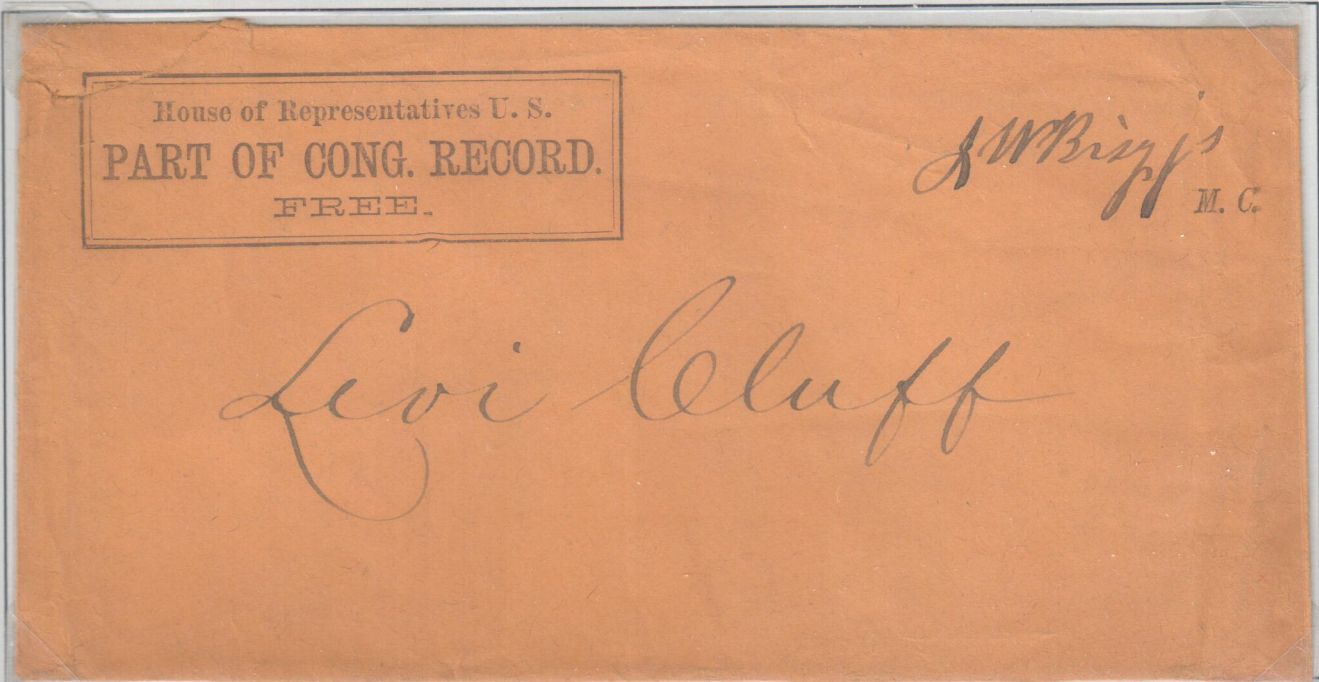 House of Representatives U. S.
PART OF CONG. RECORD.
FREE.
J W Briggs
M. C.
Levi Cluff